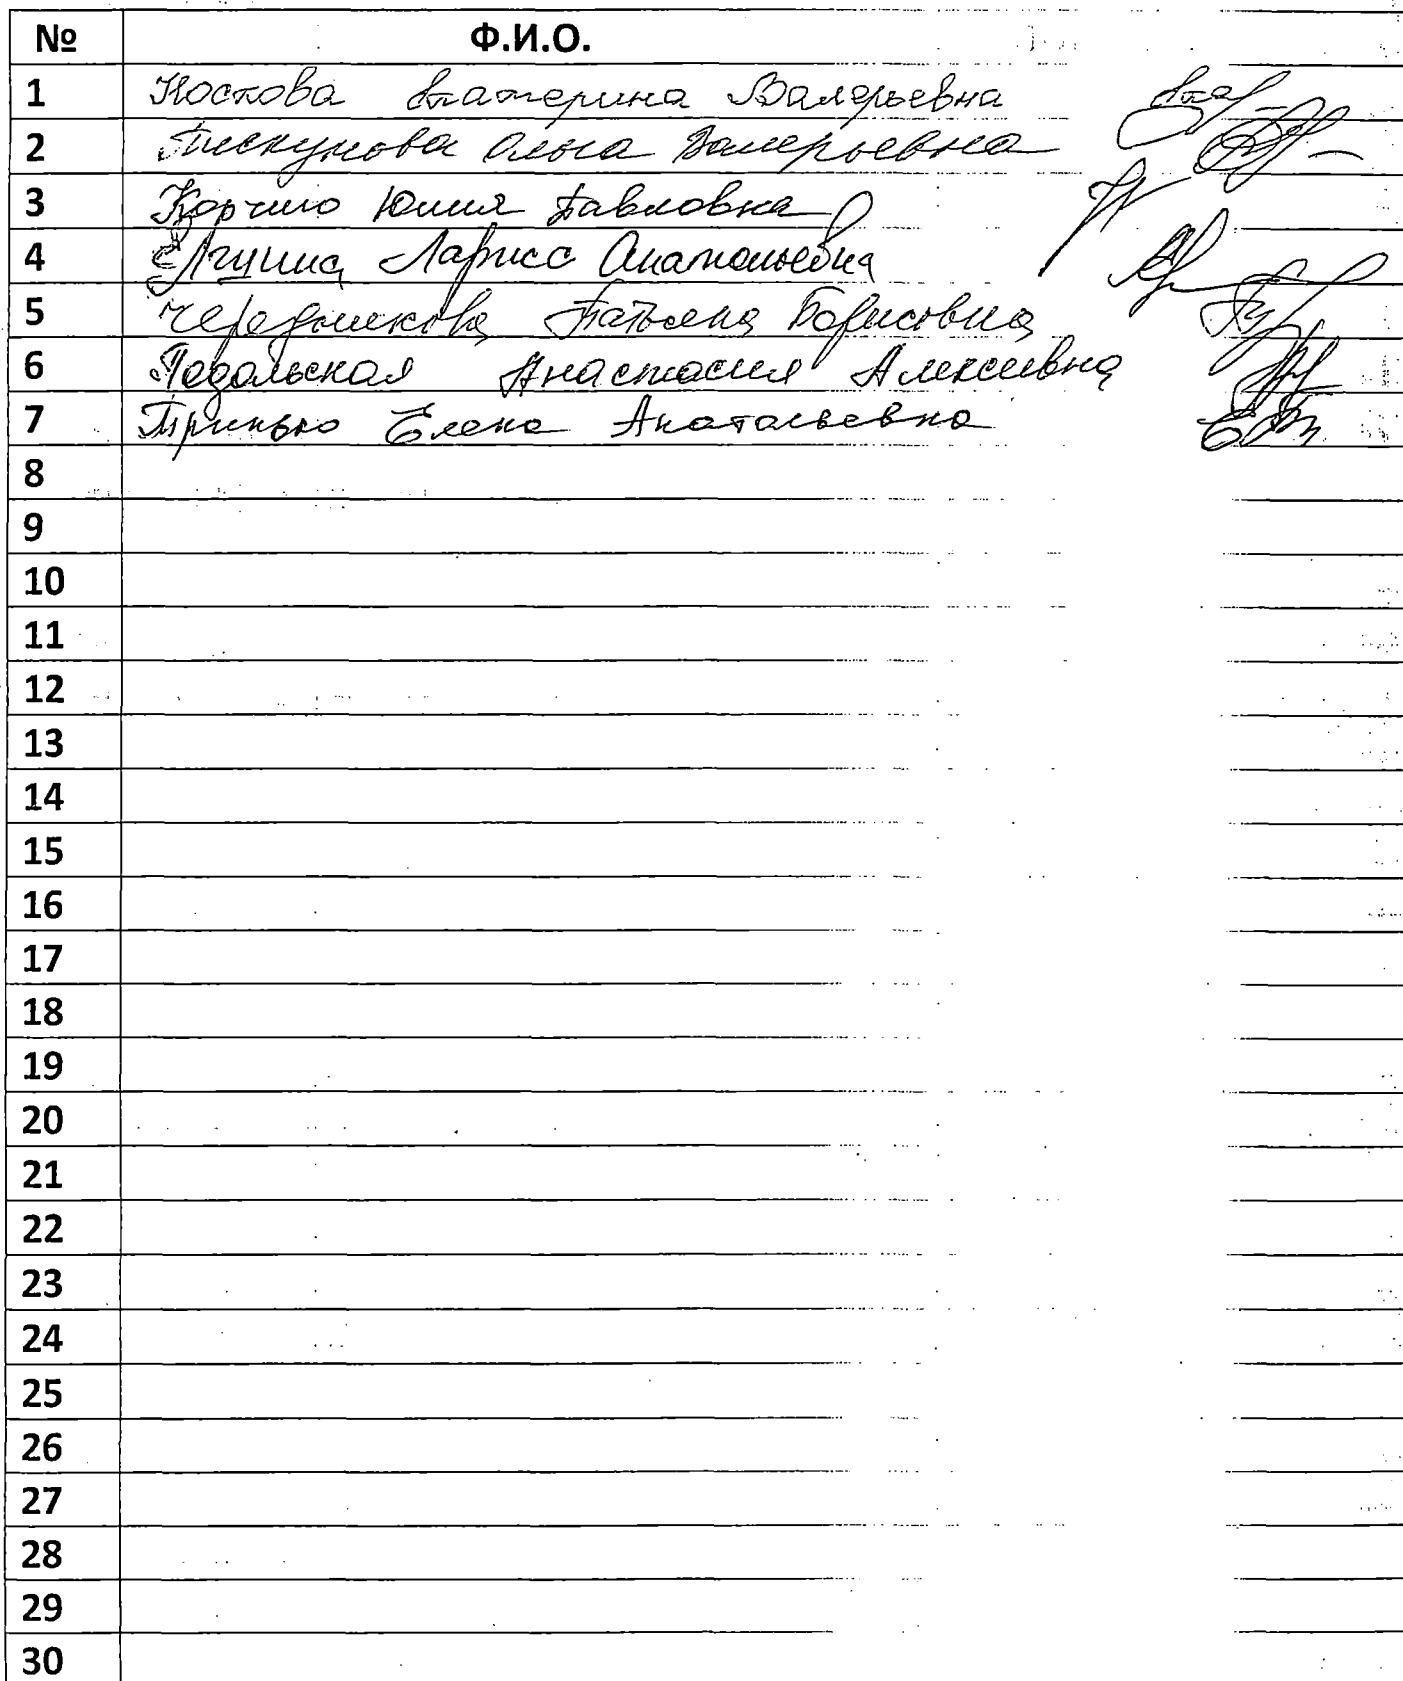 № Ф.И.О.
1 Носкова Екатерина Валерьевна
2 Пискунова Ольга Валерьевна
3 Юлия Павловна
4 Лариса Анатольевна
5 Чередникова Татьяна Борисовна
6 Подольская Анастасия Алексеевна
7 Тринько Елена Анатольевна
8
9
10
11
12
13
14
15
16
17
18
19
20
21
22
23
24
25
26
27
28
29
30